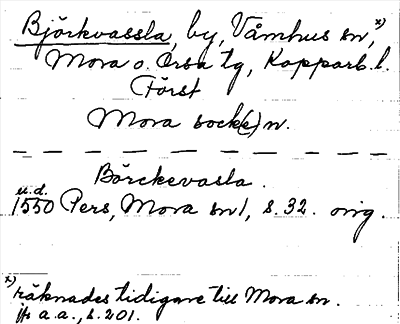 Björkvassla, by, Våmhus sn,x)
Mora o. Orsa tg, Kopparb. l.
Först
Mora sock(e)n.
Börckevasla.
u.d.
1550 Pers, Mora sn 1, s. 32. orig.
x) räknades tidigare till Mora sn.
jfr a.a., s. 201.